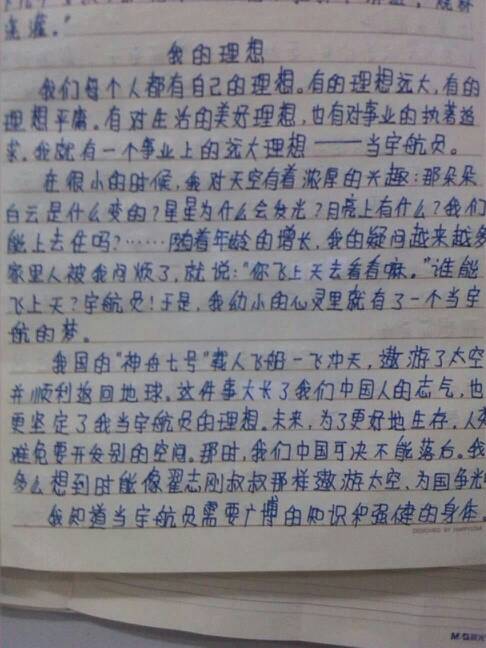 连灌。"
我的理想
我们每个人都有自己的理想。有的理想远大,有的
理想平庸。有对生活的美好理想,也有对事业的执著追
求。我就有一个事业上的远大理想——当宇航员。
在很小的时候,我对天空有着浓厚的兴趣:那朵朵
白云是什么变的?星星为什么会发光?月亮上有什么?我们
能上去住吗?……随着年龄的增长,我的疑问越来越多
家里人被我问烦了,就说:"你飞上天去看看嘛。"谁能
飞上天?宇航员!于是,我幼小的心灵里就有了一个当宇
航的梦。
我国的"神舟七号"载人飞船一飞冲天,遨游了太空
并顺利返回地球。这件事大长了我们中国人的志气,也
更坚定了我当宇航员的理想。未来,为了更好地生存,人类
难免要开发别的空间。那时,我们中国可决不能落后。我
多么想到时能像翟志刚叔叔那样遨游太空,为国争光
我知道当宇航员需要广博的知识和强健的身体。
DESIGNED BY
M&G晨光